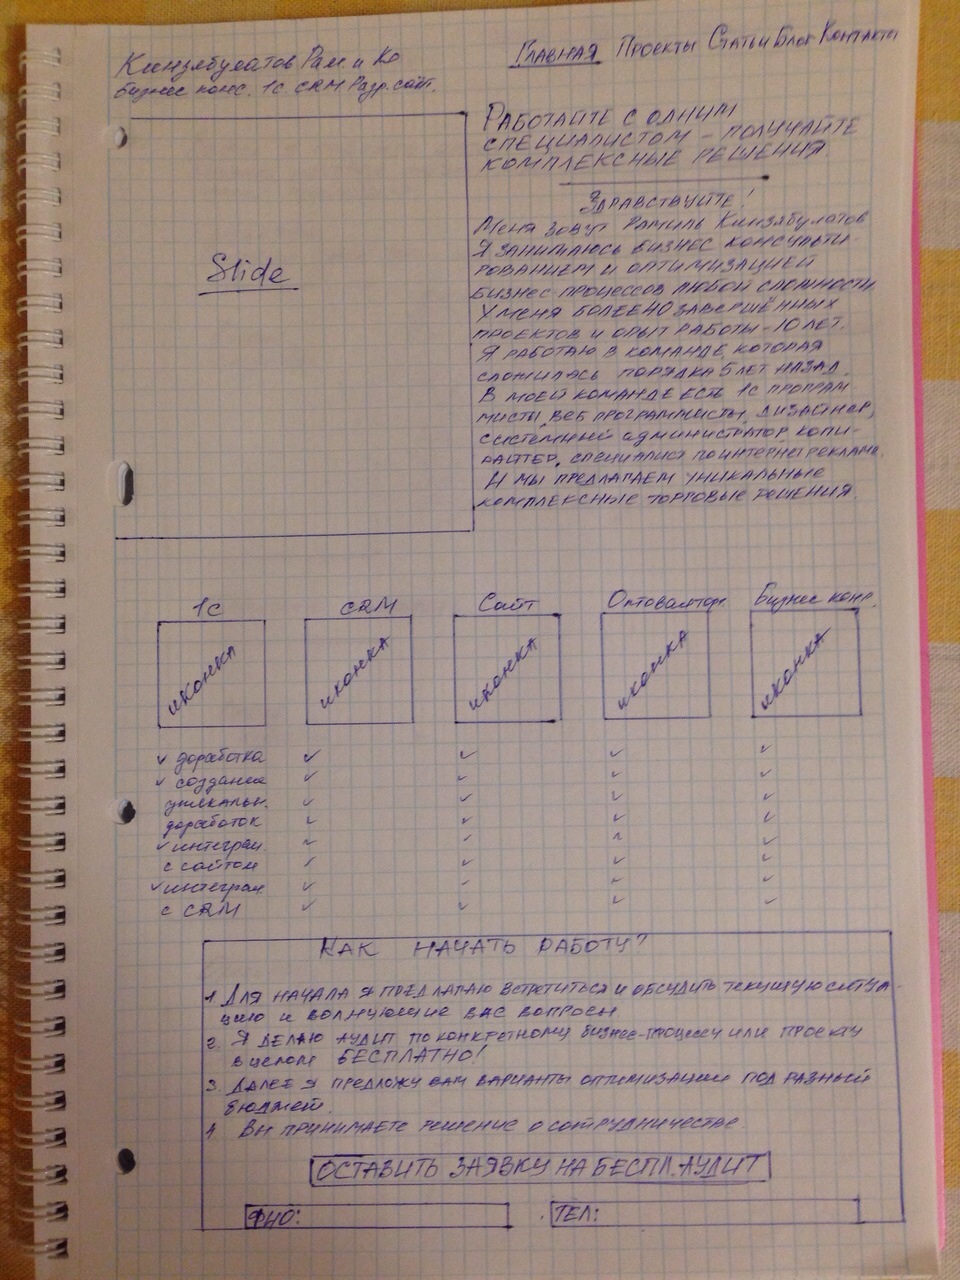 Кинзябулатов Рам. и Ко
бизнес конс. 1С. CRM Разр. сайт.
Главная Проекты Статьи Блог Контакты
Slide
Работайте с одним
специалистом – получайте
комплексные решения.
Здравствуйте!
Меня зовут Рамиль Кинзябулатов
Я занимаюсь бизнес консульти-
рованием и оптимизацией
бизнес-процессов любой сложности
У меня более 40 завершённых
проектов и опыт работы – 10 лет.
Я работаю в команде, которая
сложилась порядка 5 лет назад.
В моей команде есть 1С програм-
мисты, веб программисты, дизайнер,
системный администратор копи-
райтер, специалист по интернет рекламе.
И мы предлагаем уникальные
комплексные торговые решения.
1С CRM Сайт Бизнес конс.
иконка иконка иконка иконка иконка
✓ доработка
✓ создание
уникальн.
доработок
✓ интеграц.
с сайтом
✓ интеграц.
с CRM
Как начать работу?
1. Для начала я предлагаю встретиться и обсудить текущую ситуа-
цию и волнующие вас вопросы
2. Я делаю аудит по конкретному бизнес-процессу или проекту
в целом БЕСПЛАТНО!
3. Далее я предложу вам варианты оптимизации под разный
бюджет.
4. Вы принимаете решение о сотрудничестве.
ОСТАВИТЬ ЗАЯВКУ НА БЕСПЛ. АУДИТ
ФИО: ТЕЛ: